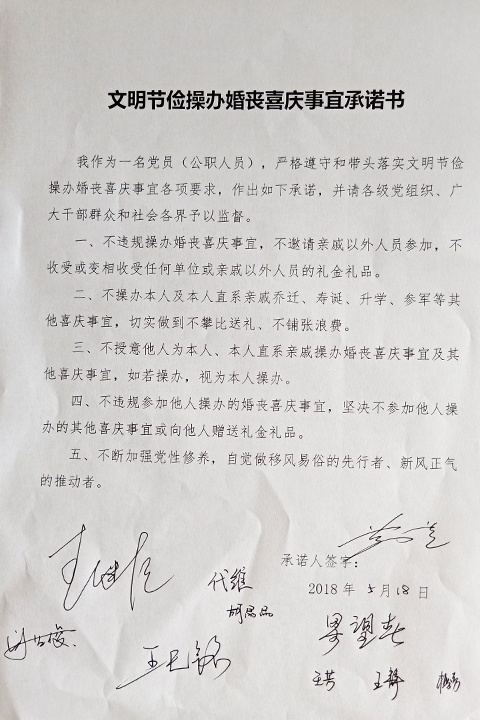 文明节俭操办婚丧喜庆事宜承诺书
我作为一名党员（公职人员），严格遵守和带头落实文明节俭
操办婚丧喜庆事宜各项要求，作出如下承诺，并请各级党组织、广
大干部群众和社会各界予以监督。
一、不违规操办婚丧喜庆事宜，不邀请亲戚以外人员参加，不
收受或变相收受任何单位或亲戚以外人员的礼金礼品。
二、不操办本人及本人直系亲戚乔迁、寿诞、升学、参军等其
他喜庆事宜，切实做到不攀比送礼、不铺张浪费。
三、不授意他人为本人、本人直系亲戚操办婚丧喜庆事宜及其
他喜庆事宜，如若操办，视为本人操办。
四、不违规参加他人操办的婚丧喜庆事宜，坚决不参加他人操
办的其他喜庆事宜或向他人赠送礼金礼品。
五、不断加强党性修养，自觉做移风易俗的先行者、新风正气
的推动者。
承诺人签字：
代维
2018 年 5 月 18 日
王芳 王静